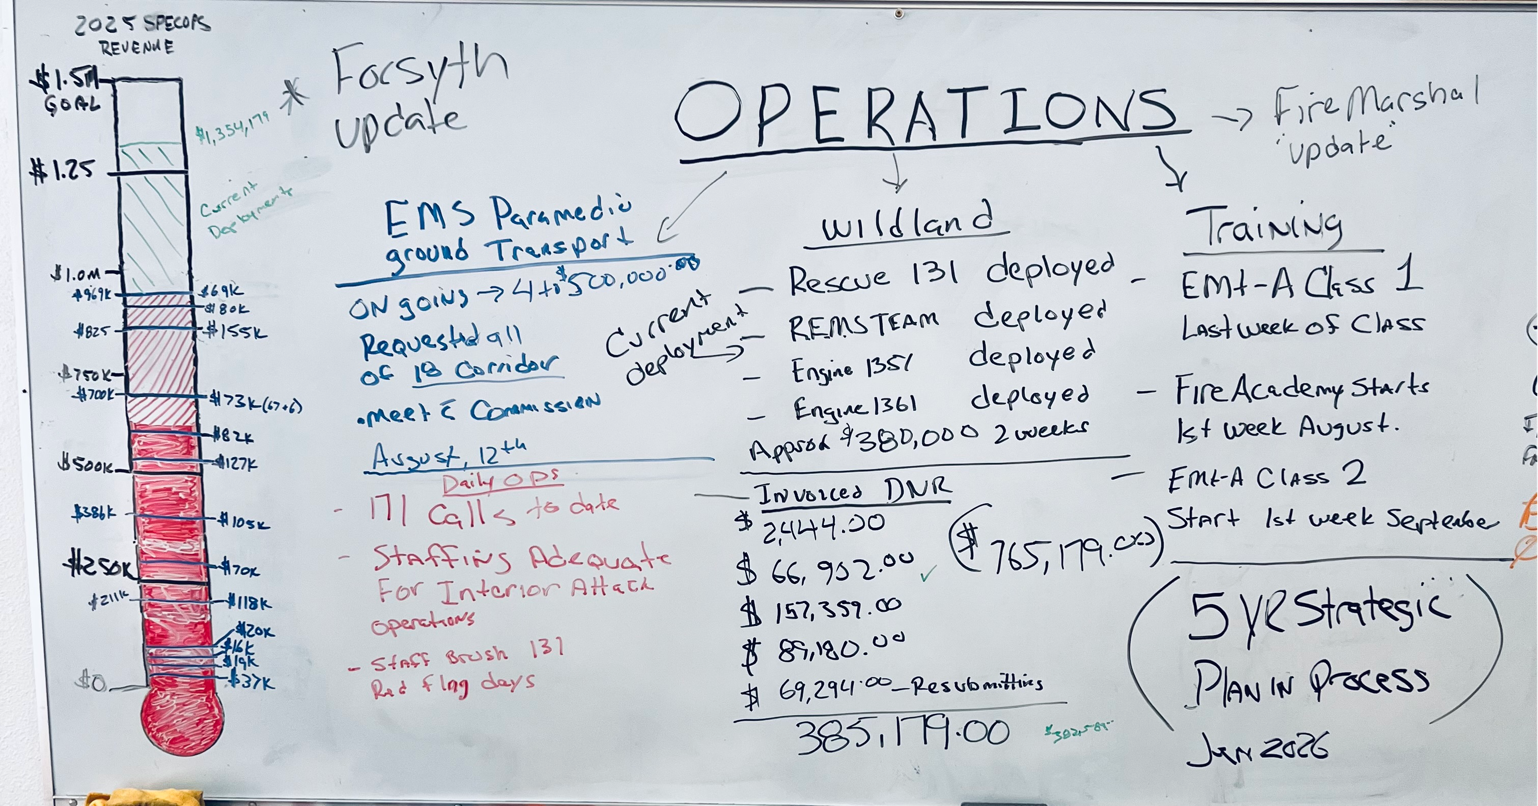 2025 SPECOPS
REVENUE
$1.5M
GOAL
$1,354,179
$1.25
Current
Deployments
$1.0M
$969K
$69K
$80K
$825
$155K
$750K
$700K
$73K (67+6)
$82K
$127K
$500K
$386K
$105K
$250K
$70K
$211K
$118K
$20K
$16K
$19K
$37K
$0
* Forsyth
update
OPERATIONS
→ Fire Marshal
"update"
EMS Paramedic
ground Transport
ON going → 4 to $500,000.00
Requested all
of 18 Corridor
. meet c̄ Commission
August, 12th
Daily Ops
- 171 Calls to date
- Staffing Adequate
For Interior Attack
operations
- Staff Brush 131
Red flag days
Wildland
Current
deployment
- Rescue 131 deployed
- REMS TEAM deployed
- Engine 1351 deployed
- Engine 1361 deployed
Approx $380,000 2 weeks
Invoiced DNR
$ 2,444.00
$ 66,902.00 ✓
$ 157,359.00
$ 89,180.00
$ 69,294.00 - Resubmitting
385,179.00
($ 765,179.00)
Training
- EMT-A Class 1
Last week of Class
- Fire Academy Starts
1st week August.
- EMT-A Class 2
Start 1st week September
5 YR Strategic
Plan in Process
Jan 2026